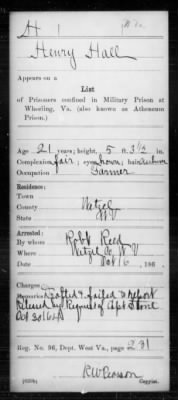 H 1 W. Va.
Henry Hall
Appears on a
List
of Prisoners confined in Military Prison at
Wheeling, Va. (also known as Atheneum
Prison.)
Age 21 years; height, 5 ft. 3½ in.
Complexion fair; eyes brown; hair auburn
Occupation Farmer
Residence:
Town
County Wetzel
State W V
Arrested:
By whom Robt Reed
Where Wetzel Co W V
Date Oct 6, 186 .
Charges
Remarks: Drafted & failed to report
Released by Request of Capt
Oct 30/64
Reg. No. 96, Dept. West Va., page 231
R W Pearson
Copyist.